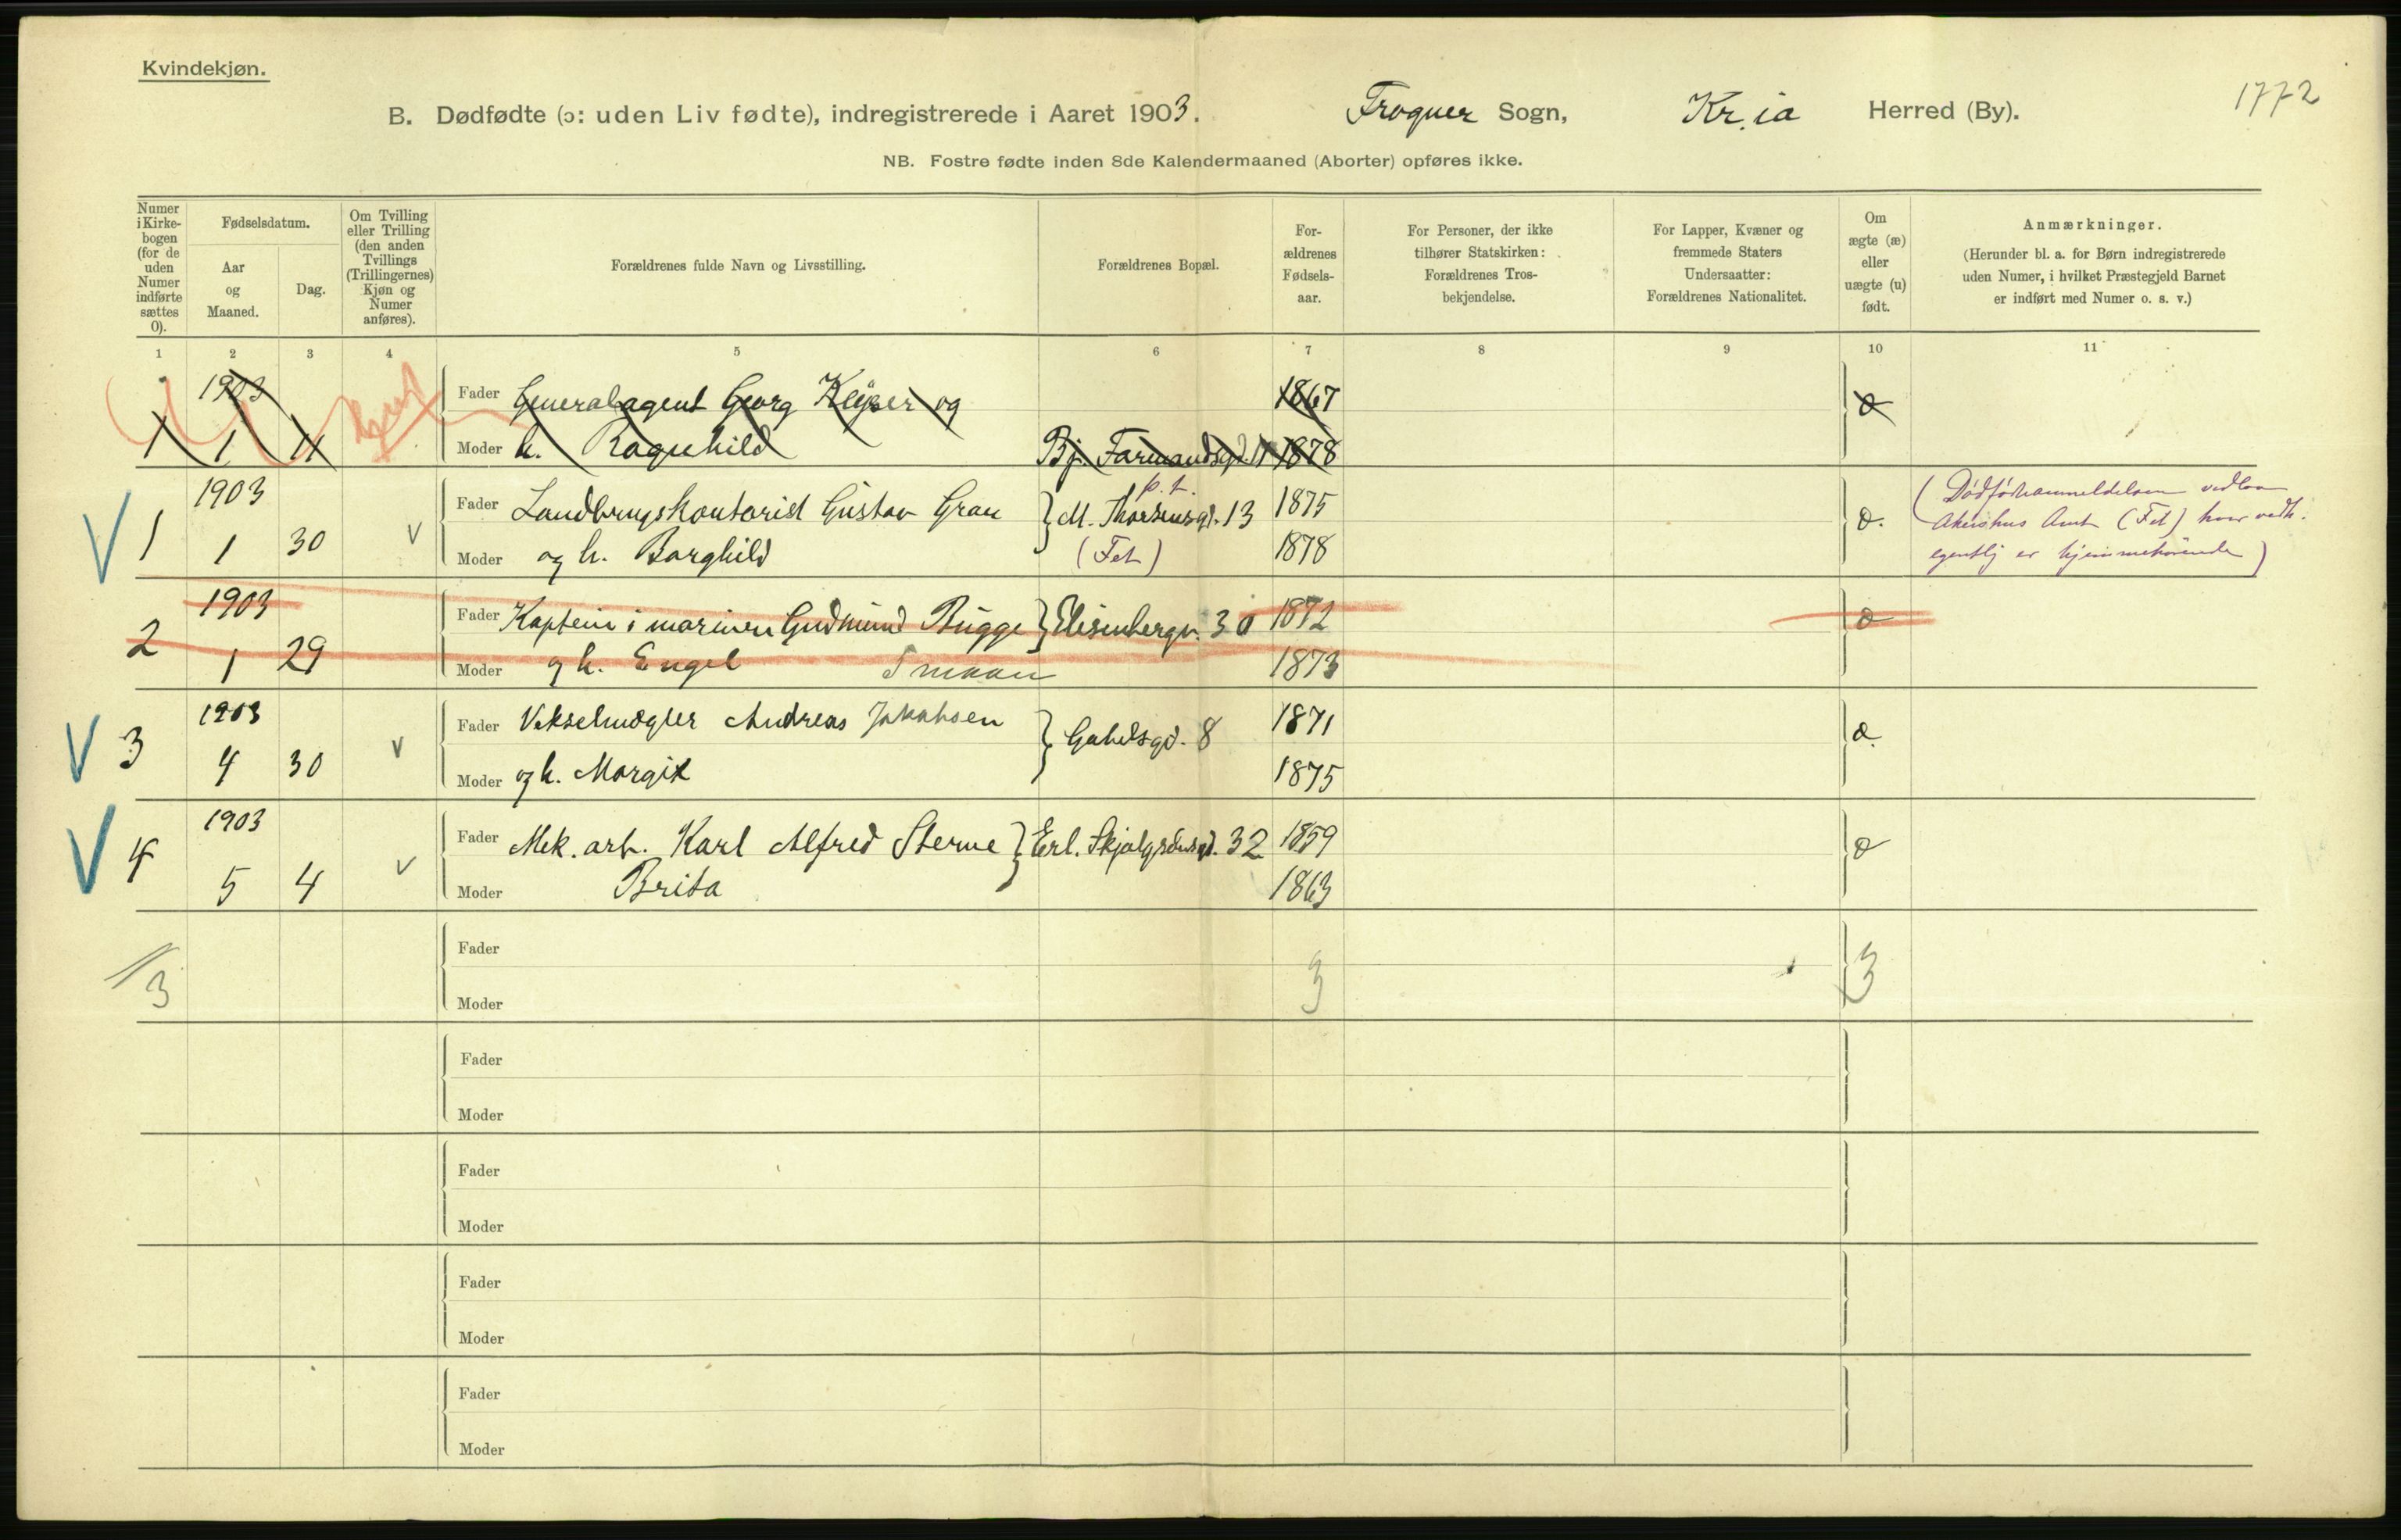 Kvindekjøn.
1772
B. Dødfødte (ɔ: uden Liv fødte), indregistrerede i Aaret 1903. Frogner Sogn, Kr.ia Herred (By).
NB. Fostre fødte inden 8de Kalendermaaned (Aborter) opføres ikke.
Numer i Kirke- bogen (for de uden Numer indførte sættes 0).
Fødselsdatum.
Aar og Maaned.
Dag.
Om Tvilling eller Trilling (den anden Tvillings (Trillingernes) Kjøn og Numer anføres).
Forældrenes fulde Navn og Livsstilling.
Forældrenes Bopæl.
For- ældrenes Fødsels- aar.
For Personer, der ikke tilhører Statskirken: Forældrenes Tros- bekjendelse.
For Lapper, Kvæner og fremmede Staters Undersaatter: Forældrenes Nationalitet.
Om ægte (æ) eller uægte (u) født.
Anmærkninger.
(Herunder bl. a. for Børn indregistrerede uden Numer, i hvilket Præstegjeld Barnet er indført med Numer o. s. v.)
1 2 3 4 5 6 7 8 9 10 11
1903 Fader Generalagent Georg Keyser og 1867 æ
1 1 11 Moder h. Ragnhild Bj. Farmandsgd. 11 1878
1903 Fader Landbrugskontorist Gustav Grau p.t. M. Thorsensgd. 13 1875 æ.
V 1 1 30 V Moder og h. Borghild (Fet) 1878
(Dødfødtanmeldelsen
Akershus Amt (Fet) hvor vedk.
egentlig er hjemmehørende)
1903 Fader Kaptein i marinen Gudmund Bugge Elisenbergv. 30 1872 æ
2 1 29 Moder og h. Engel 1873
1903 Fader Vekselmægler Andreas Jakobsen Gabelsgd. 8 1871 æ.
V 3 4 30 V Moder og h. Margit 1875
1903 Fader Mek. arb. Karl Alfred Sterne Erl. Skjalgsønsgd. 32 1859 æ
V 4 5 4 V Moder Brita 1863
Fader
3 Moder 3 3
Fader
Moder
Fader
Moder
Fader
Moder
Fader
Moder